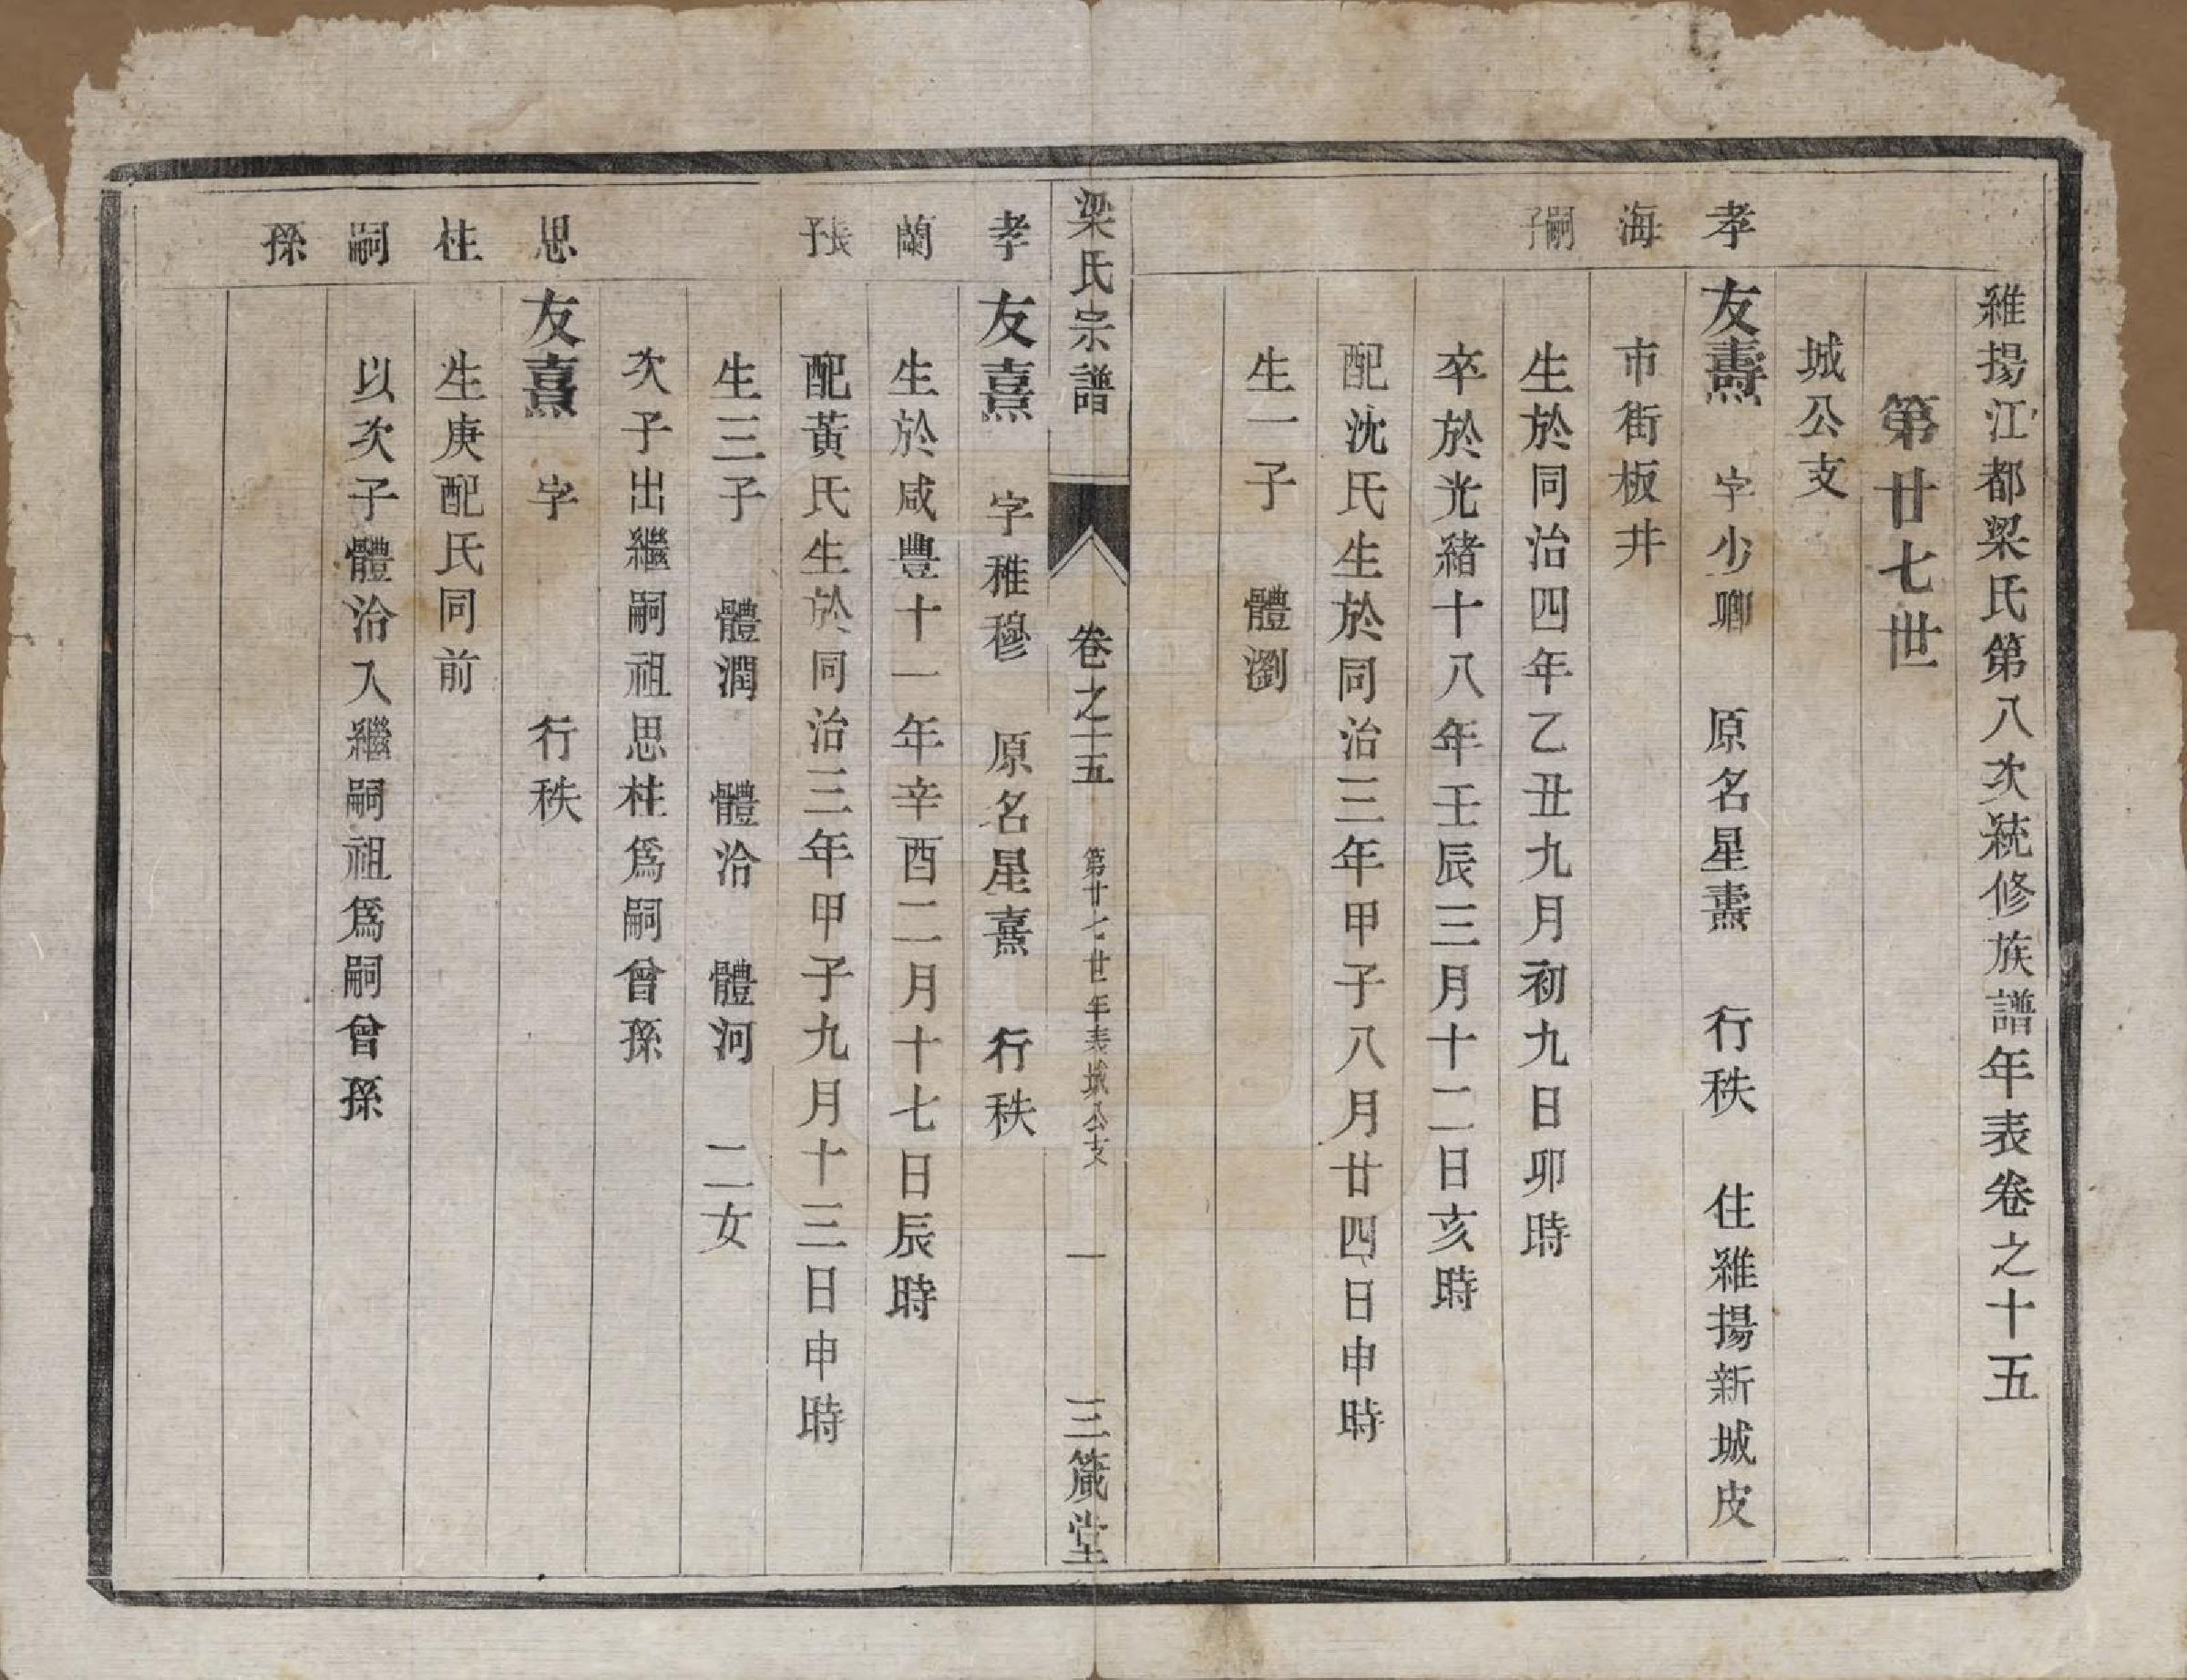 維揚江都梁氏第八次統修族譜年表卷之十五
第廿七世
城公支
孝海嗣子
友燾　字少卿　原名星燾　行秩　住維揚新城皮
市街板井
生於同治四年乙丑九月初九日卯時
卒於光緒十八年壬辰三月十二日亥時
配沈氏生於同治三年甲子八月廿四日申時
生一子　體瀏
梁氏宗譜　卷之十五　第廿七世年表城公支　一　三箴堂
孝蘭長子
友熹　字稚穆　原名星熹　行秩
生於咸豐十一年辛酉二月十七日辰時
配黃氏生於同治三年甲子九月十三日申時
生三子　體潤　體洽　體河　二女
次子出繼嗣祖思柱爲嗣曾孫
思柱嗣孫
友熹　字　行秩
生庚配氏同前
以次子體洽入繼嗣祖爲嗣曾孫